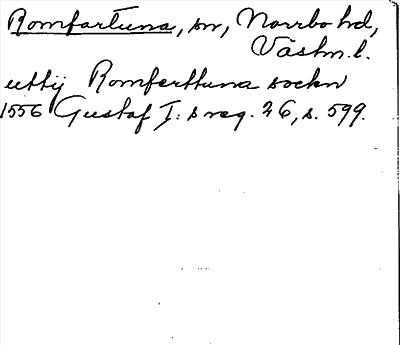 Romfartuna, sn, Norrbo hd,
Västm. l.
uttij Romferttuna sockn
1556 Gustaf I: s reg. 26, s. 599.